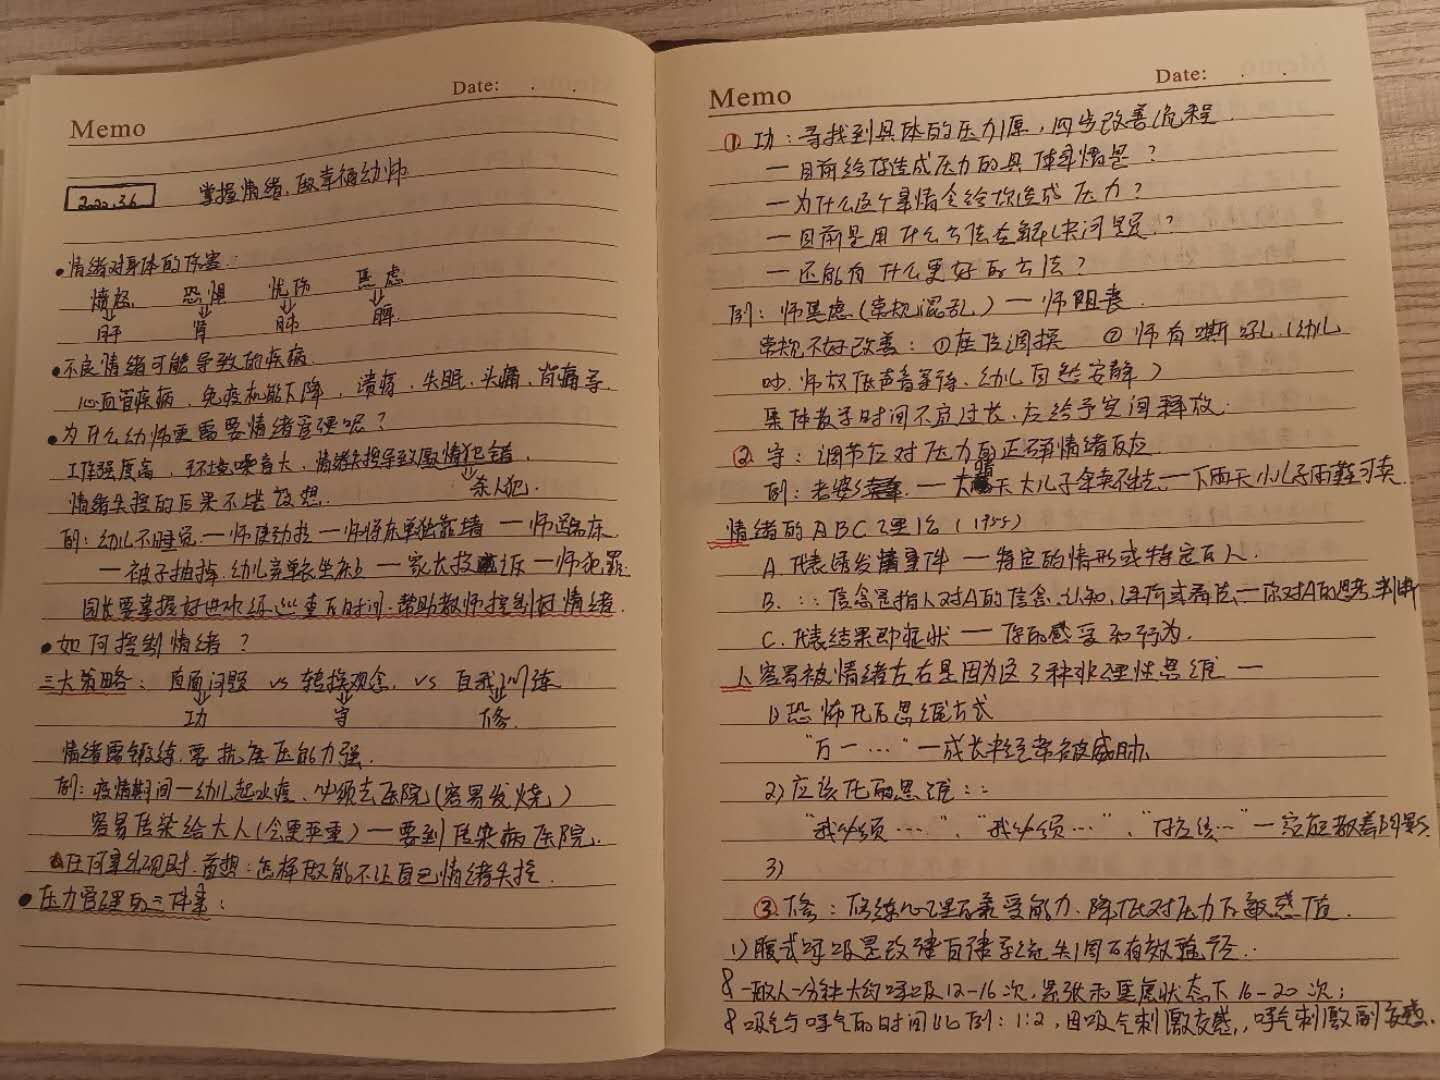 Date: . .
Memo
2020.3.6 掌握情绪,做幸福幼师
•情绪对身体的伤害:
愤怒 恐惧 忧伤 焦虑
肝 肾 肺 脾
•不良情绪可能导致的疾病
心血管疾病,免疫机能下降,溃疡,失眠,头痛,背痛等
•为什么幼师更需要情绪管理呢?
工作强度高,环境噪音大,情绪失控导致激情犯错
杀人犯.
情绪失控的后果不堪设想.
例:幼儿不睡觉—师使劲拉—师将床单独靠墙—师踢床
—被子抽掉,幼儿穿单衣坐床上—家长投诉—师犯罪.
园长要掌握好进班巡查的时间,帮助教师控制好情绪.
•如何控制情绪?
三大策略:直面问题 vs 转换观念 vs 自我训练
功 守 修
情绪需锻练,要抗压能力强.
例:疫情期间—幼儿起水痘,必须去医院(容易发烧)
容易传染给大人(会更严重)—要到传染病医院.
任何事出现时,首想:怎样做能不让自己情绪失控.
•压力管理的三件事:
Date: . .
Memo
①功:寻找到具体的压力源,四步改善流程.
—目前给你造成压力的具体事情是?
—为什么这个事情会给你造成压力?
—目前是用什么方法在解决问题?
—还能有什么更好的方法?
例:师焦虑(常规混乱)—师沮丧.
常规不好改善:①座位调换 ②师有嘶吼(幼儿
吵,师放低声音等待,幼儿自然安静)
集体教学时间不宜过长,应给予空间释放.
②守:调节应对压力的正确情绪反应.
例:老婆婆—晴天大儿子伞卖不出去—下雨天小儿子雨鞋可卖.
情绪的ABC理论(1955)
A.代表诱发事件—特定的情形或特定的人.
B. : : 信念是指人对A的信念、认知、评价或看法—你对A的思考判断
C.代表结果即症状—你的感受和行为.
人容易被情绪左右是因为这3种非理性思维—
1)恐怖化的思维方式
"万一…"—成长中经常被威胁
2)应该化的思维::
"我必须……"、"我必须…"、"你应该…"—家庭教养的影
3)
③修:修练心理的承受能力,降低对压力的敏感值.
1)腹式呼吸是改建自律系统失调的有效途径.
一般人一分钟大约呼吸12-16次,紧张和焦虑状态下16-20次;
吸气与呼气的时间比例:1:2,因吸气刺激交感,呼气刺激副交感.